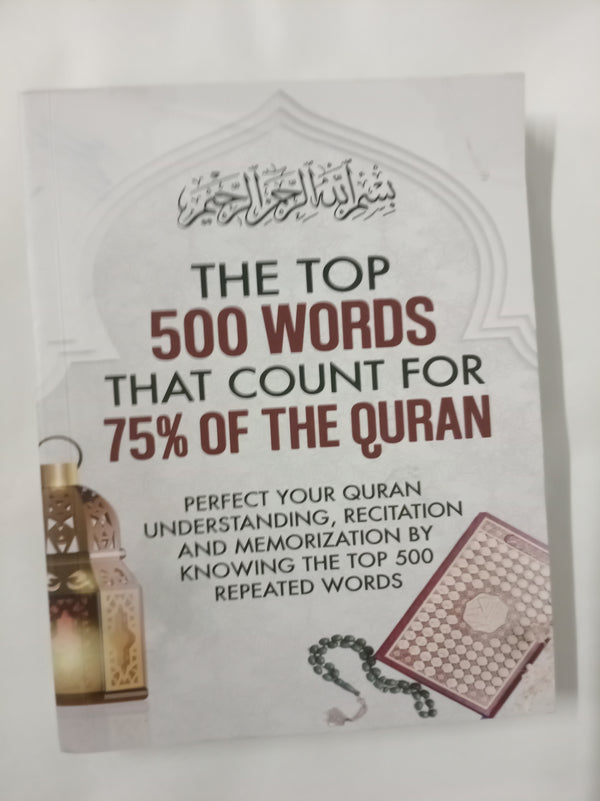 بِسْمِ اللَّهِ الرَّحْمَٰنِ الرَّحِيمِ
THE TOP
500 WORDS
THAT COUNT FOR
75% OF THE QURAN
PERFECT YOUR QURAN
UNDERSTANDING, RECITATION
AND MEMORIZATION BY
KNOWING THE TOP 500
REPEATED WORDS